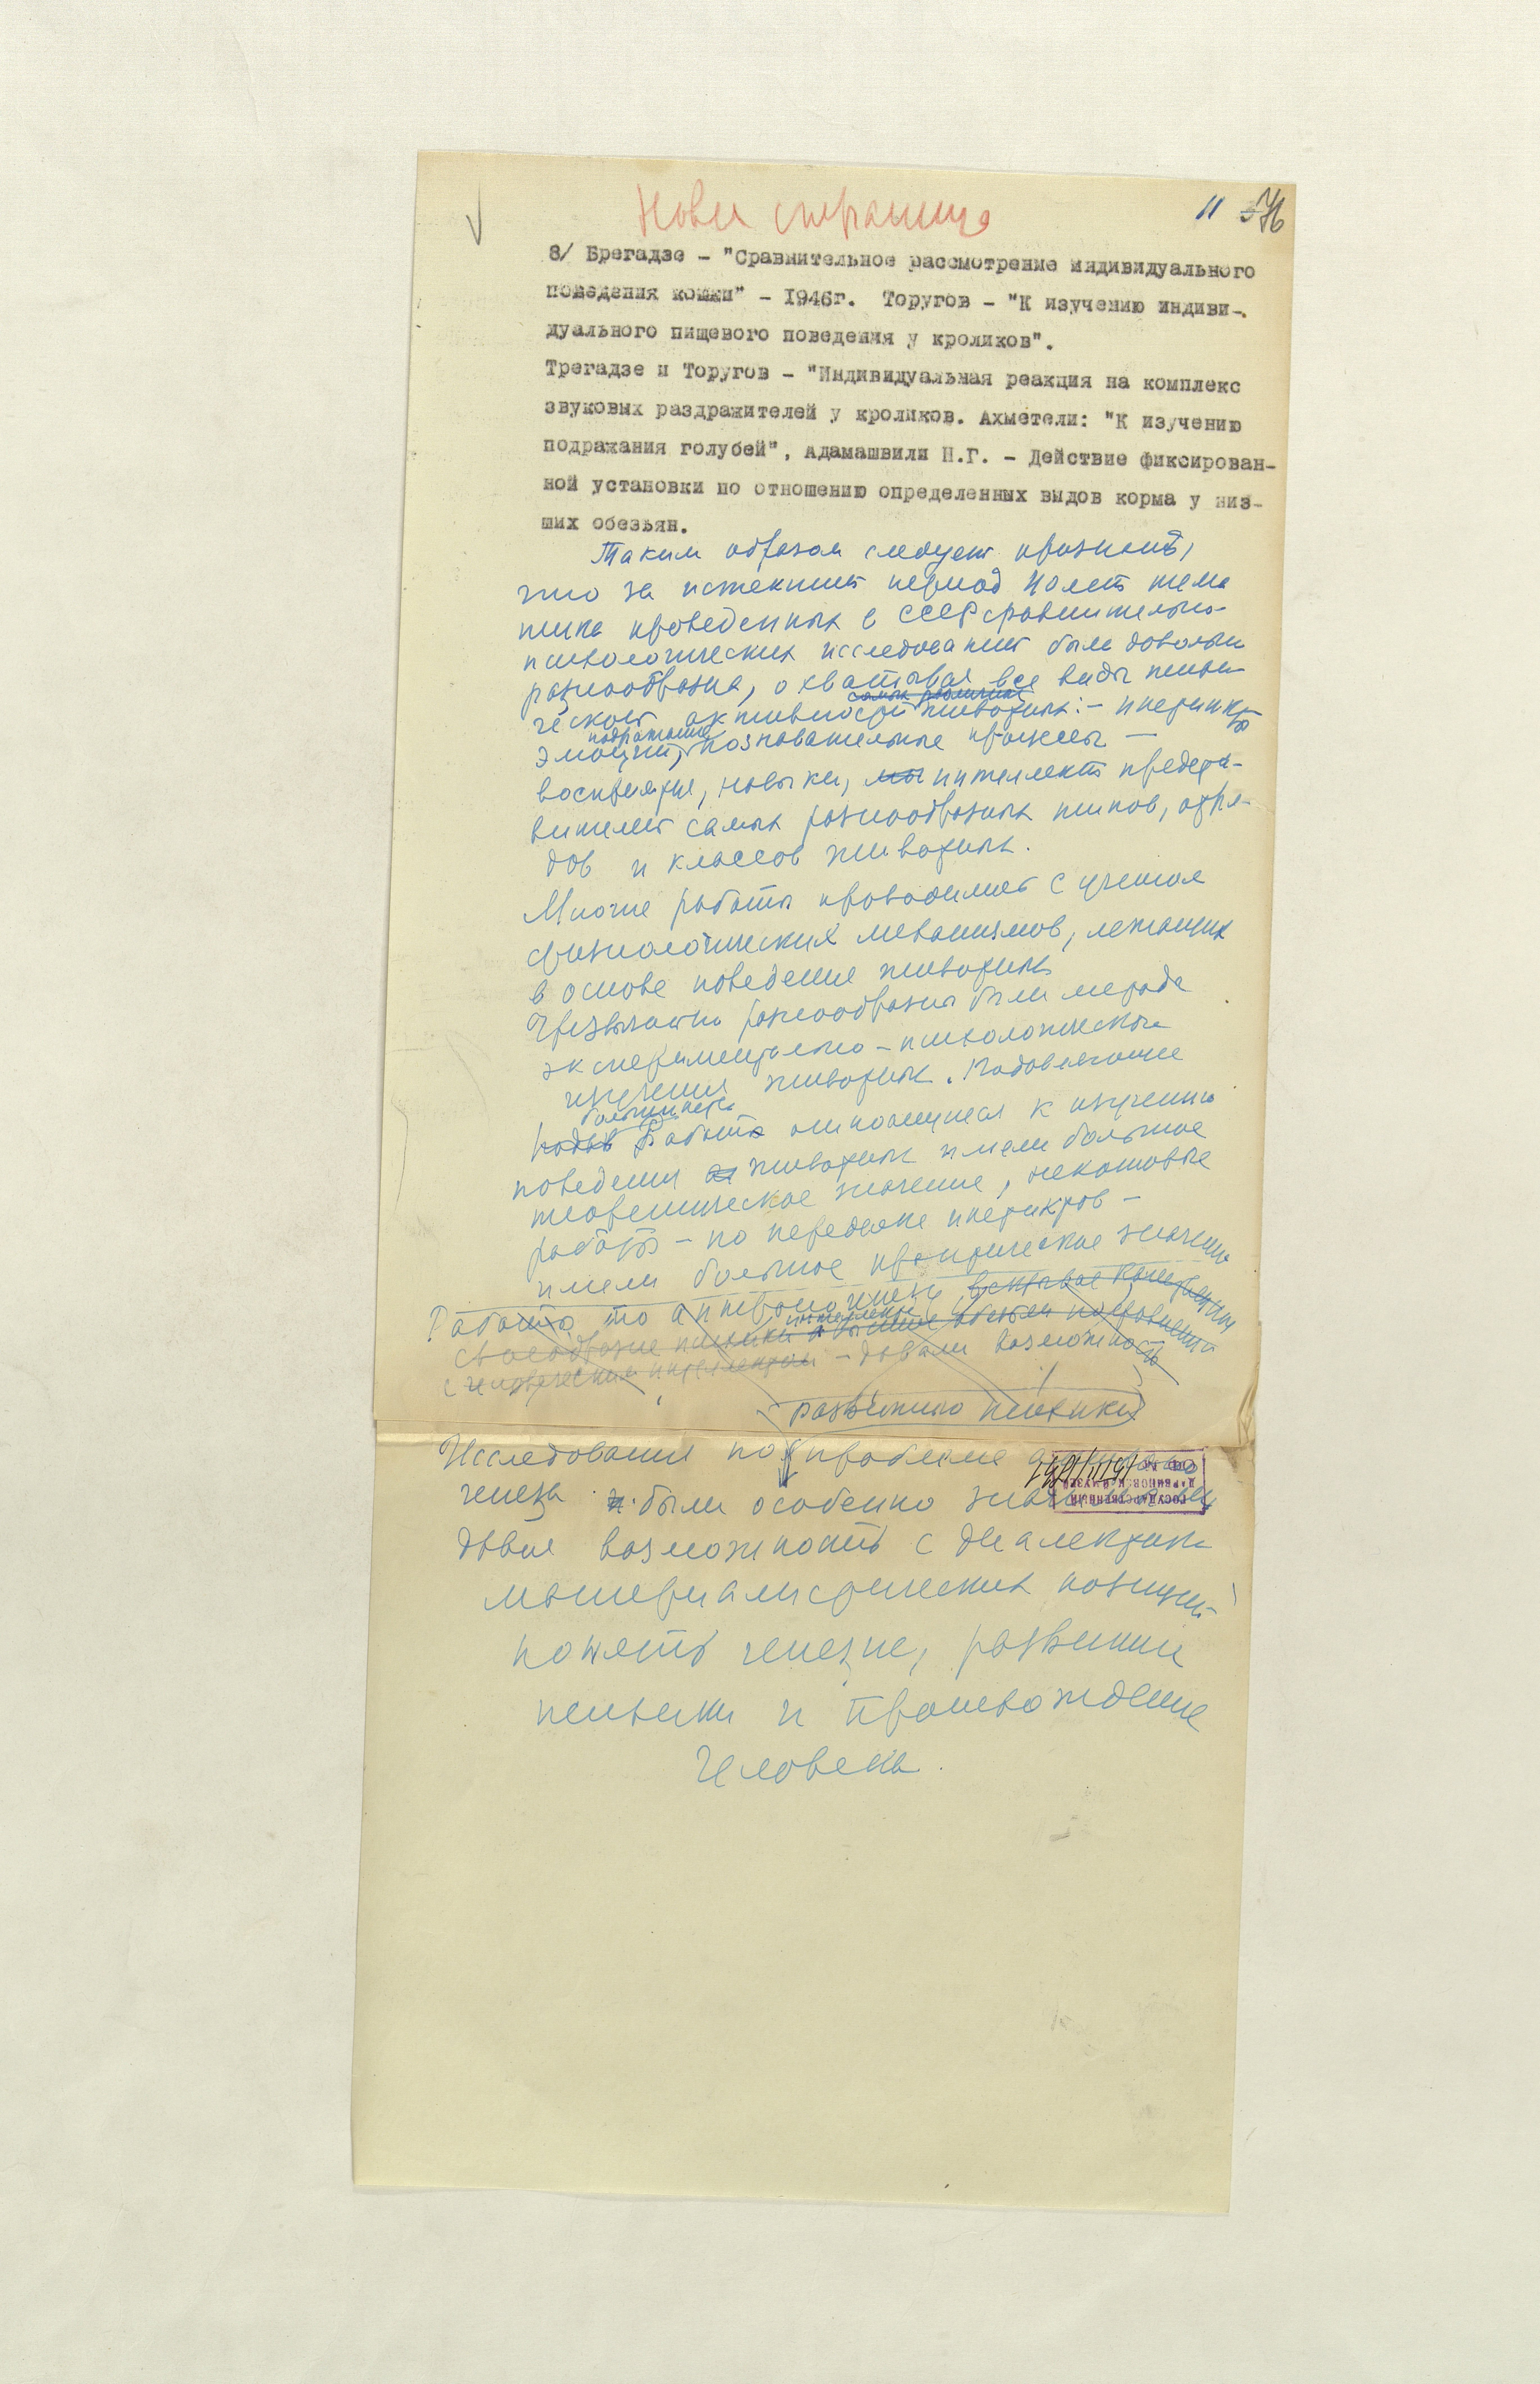 Новая страница
11 56
8/ Брегадзе - "Сравнительное рассмотрение индивидуального
поведения кошки" - 1946г. Торугов - "К изучению индиви-
дуального пищевого поведения у кроликов".
Трегадзе и Торугов - "Индивидуальная реакция на комплекс
звуковых раздражителей у кроликов. Ахметели: "К изучению
подражания голубей", Адамашвили Н.Г. - Действие фиксирован-
ной установки по отношению определенных видов корма у низ-
ших обезьян.
Таким образом следует признать,
что за истекший период 40 лет тема
тика проведенных в СССР сравнительно-
психологических исследований была довольно
разнообразна, охватывая все виды психи
самых различных
ческой активности животных: - инстинкты
подражание
эмоции, познавательные процессы -
восприятия, навыки, интеллект предста-
вителей самых разнообразных типов, отря-
дов и классов животных.
Многие работы проводились с учетом
физиологических механизмов, лежащих
в основе поведения животных
Чрезвычайно разнообразны были методы
экспериментально-психологического
изучения животных. Подавляющее
большинство
работ относящихся к изучению
поведения животных имели большое
теоретическое значение, некоторые
работы - по переделке инстинктов -
имели большое практическое значение
Работы по антропогенезу
интеллекта
своеобразие психики высших обезьян по сравнению
с человеческим интеллектом - давали возможность
развитию психики
Исследования по проблеме
генеза были особенно
давая возможность с диалектико
материалистических позиций
понять генезис, развитие
психики и происхождение
человека.
ГОСУДАРСТВЕННЫЙ
ДАРВИНОВСКИЙ МУЗЕЙ